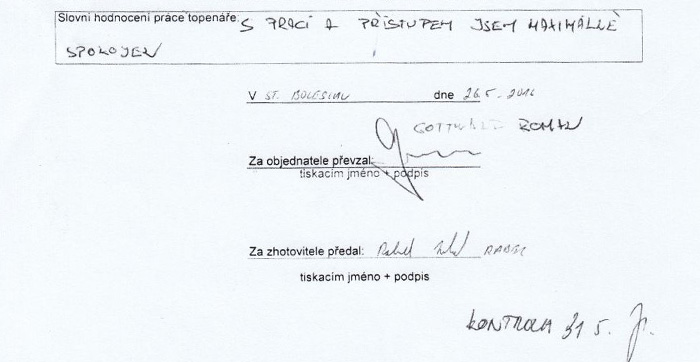 Slovní hodnocení práce topenáře: S PRACÍ A PŘÍSTUPEM JSEM MAXIMÁLLĚ
SPOKOJEN
V ST. BOLESLAV dne 26.5. 2016
GOTTWALD ROMAN
Za objednatele převzal:
tiskacím jméno + podpis
Za zhotovitele předal:
tiskacím jméno + podpis
KONTROLA 31 5.